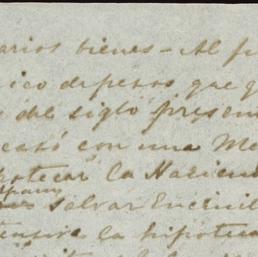 arios bienes - Al f
ico depesos que q
del siglo presen
casó con una Me
potecar la Hacien
salvar Encinil
tensiva la hipoteca